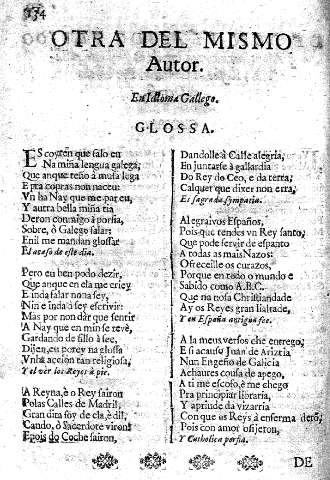 134
OTRA DEL MISMO
Autor.
En Idioma Gallego.
GLOSSA.
EScoyten que falo en
Na miña lengua galega,
Que anque teño à musa lega
E pra copras non naceu:
Vn ha Nay que me pareu,
Y autra bella miña tia
Deron conmigo à porsia,
Sobre, ò Galego falar:
Enil me mandan glossar
El acaso de este dia.
Pero eu ben podo dezir,
Que anque en ela me criey
E inda falar non a sey,
Nin e inda ò sey escrivir:
Mas por non dar que sentir
A Nay que en min se revè,
Gardando de fillo à see,
Dijen, eu porey na glossa
Vnha acción tan religiosa,
Y el ver los Reyes à pie.
A Reyna, è ò Rey sairon
Polas Calles de Madril,
Gran dita foy de ela, è dil,
Cando, ò Sacerdote viron:
Epois do Coche sairon,
Dandolle à Calle alegria,
En juntarse à gallardia
Do Rey do Ceo, e da terra,
Calquer que dixer non erra,
Es sagrada sympatia.
Alegraivos Españos,
Pois que tendes vn Rey santo,
Que pode servir de espanto
A todas as mais Nazos:
Ofreceille os curazos,
Porque en todo o mundo e
Sabido como A.B.C.
Que na nosa Christiandade
Ay os Reyes gran lialtade,
Y en España antigua fee.
A la meus versos che entrego,
E si acausu Juan de Arizria
Nun Engeño de Galicia
Achaures cousa de apego,
A ti me escoso, è me chego
Pra principiar libraria,
Y aprude da vizarria
Con que os Reys à enserma derò,
Pois con amor ofijeron,
Y Catholica porsia.
DE